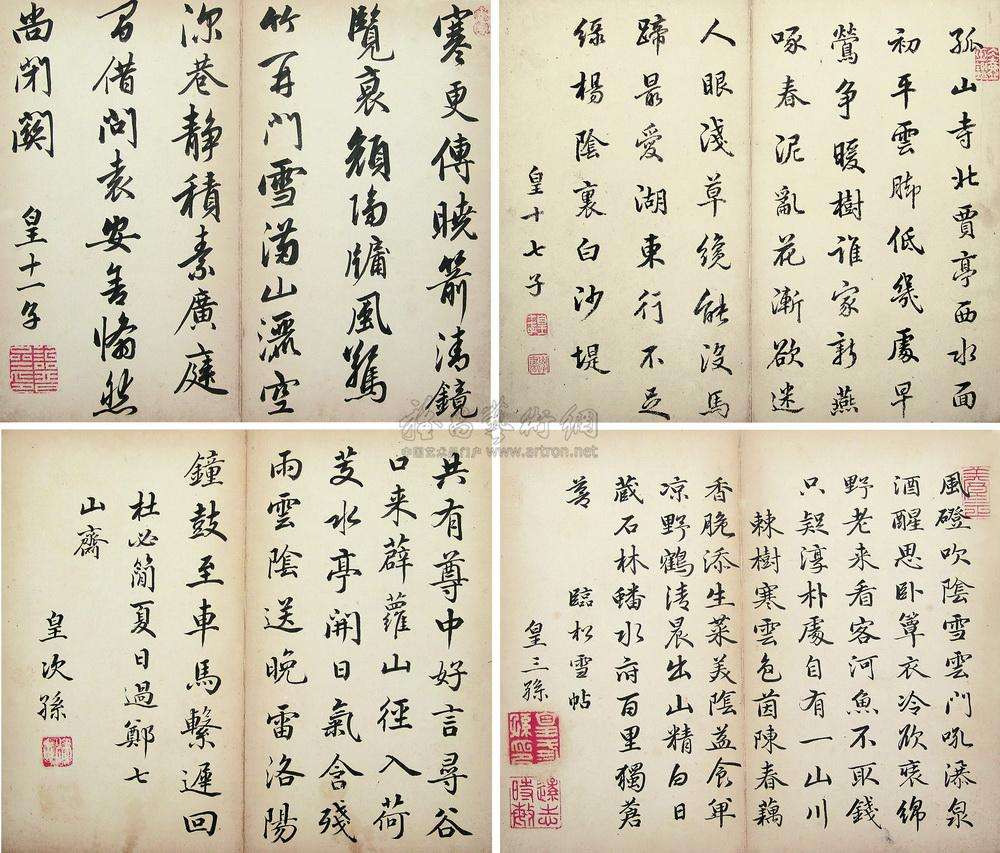 寒更傳曉箭清鏡
覽衰顏隔牖風驚
竹開門雪滿山灑空
深巷静積素廣庭
閒借問袁安舍翛然
尚閉關
皇十一子
孤山寺北賈亭西水面
初平雲脚低幾處早
鶯争暖樹誰家新燕
啄春泥亂花漸欲迷
人眼淺草纔能没馬
蹄最愛湖東行不足
綠楊陰裏白沙堤
皇十七子
共有尊中好言尋谷
口来薜蘿山徑入荷
芰水亭開日氣含殘
雨雲陰送晚雷洛陽
鐘鼓至車馬繫遲回
杜必簡夏日過鄭七
山齋
皇次孫
風磴吹陰雪雲門吼瀑泉
酒醒思卧簟衣冷欲裛綿
野老来看客河魚不取錢
只疑淳朴處自有一山川
棘樹寒雲色茵陳春藕
香脆添生菜美陰益食單
凉野鶴清晨出山精白日
藏石林蟠水府百里獨蒼
蒼
臨松雪帖
皇三孫
皇弎孫印
遜志時敏
雅昌藝術網
中国艺术品门户 www.artron.net